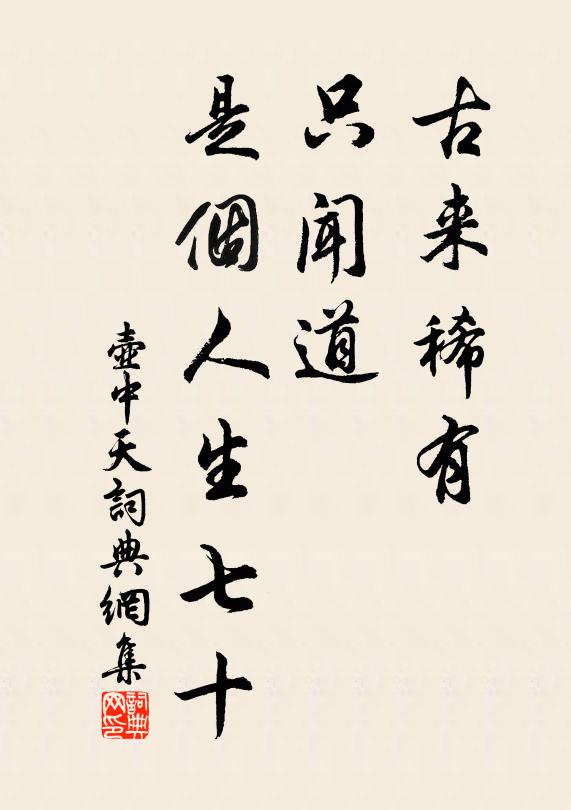 古来稀有
只聞道
是個人生七十
壺中天詞典網集
詞典
网印